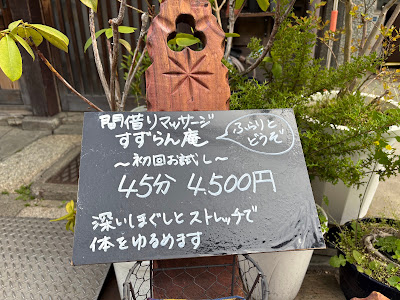 間借りマッサージ
すずらん庵
ふらりと
どうぞ
～初回お試し～
45分 4.500円
深いほぐしとストレッチで
体をゆるめます